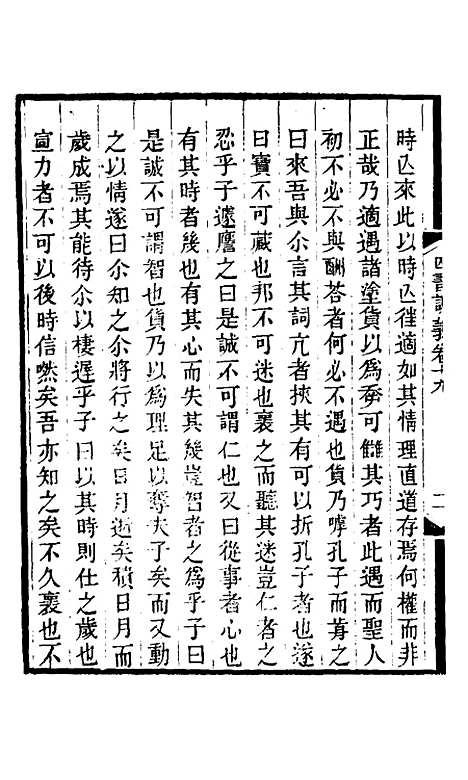 四書訓義卷十九
二
時亾來此以時亾徃適如其情理直道存焉何權而非
正哉乃適遇諸塗貨以爲奈可讎其巧者此遇而聖人
初不必不與酬荅者何不遇也貨乃嘑孔子而萛之
曰來吾與尒言其詞亢者挾其有可以折孔子者也遂
曰寶不可藏也邦不可迷也裏之而聽其迷豈仁者之
忍乎子遽譍之曰是誠不可謂仁也又曰從事者心也
有其時者幾也有其心而失其幾豈智者之爲乎子曰
是誠不可謂智也貨乃以爲理足以奪夫子矣而又動
之以情遂曰尒知之尒將行之矣日月逝矣積日月而
歲成焉其能待尒以棲遲乎子曰以其時則仕之歲也
宣力者不可以後時信喍矣吾亦知之矣不久裏也不